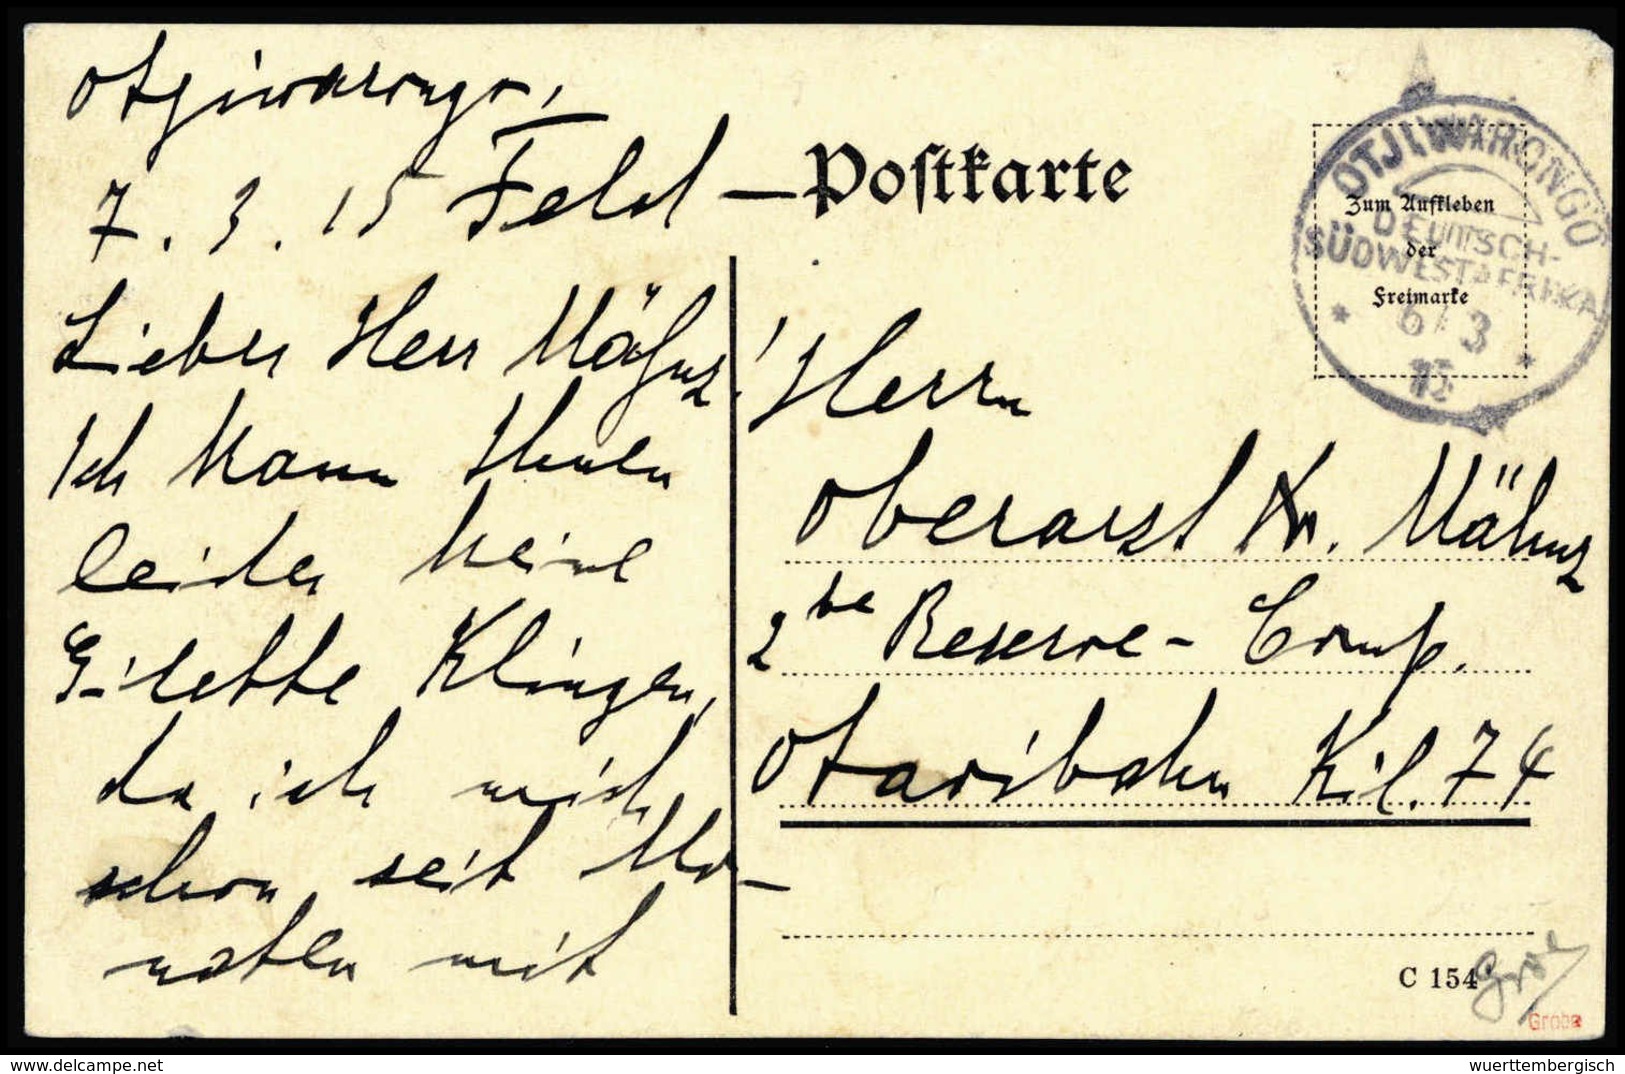 Otjiwarongo,
7. 3. 15 Feld –
Lieber Herr Mähnz!
Ich kann Ihnen
leider keine
Gilette Klingen,
da ich mich
schon seit Mo-
naten mit
Postkarte
OTJIWARONGO
DEUTSCH-
SÜDWESTAFRIKA
* 6/3 *
15
Zum Aufkleben
der
Freimarke
Herrn
Oberarzt Dr. Mähnz
2te Reserve-Comp.
Otavibahn Kil. 74
C 154
Grobe
delcampe.net
wuerttembergisch